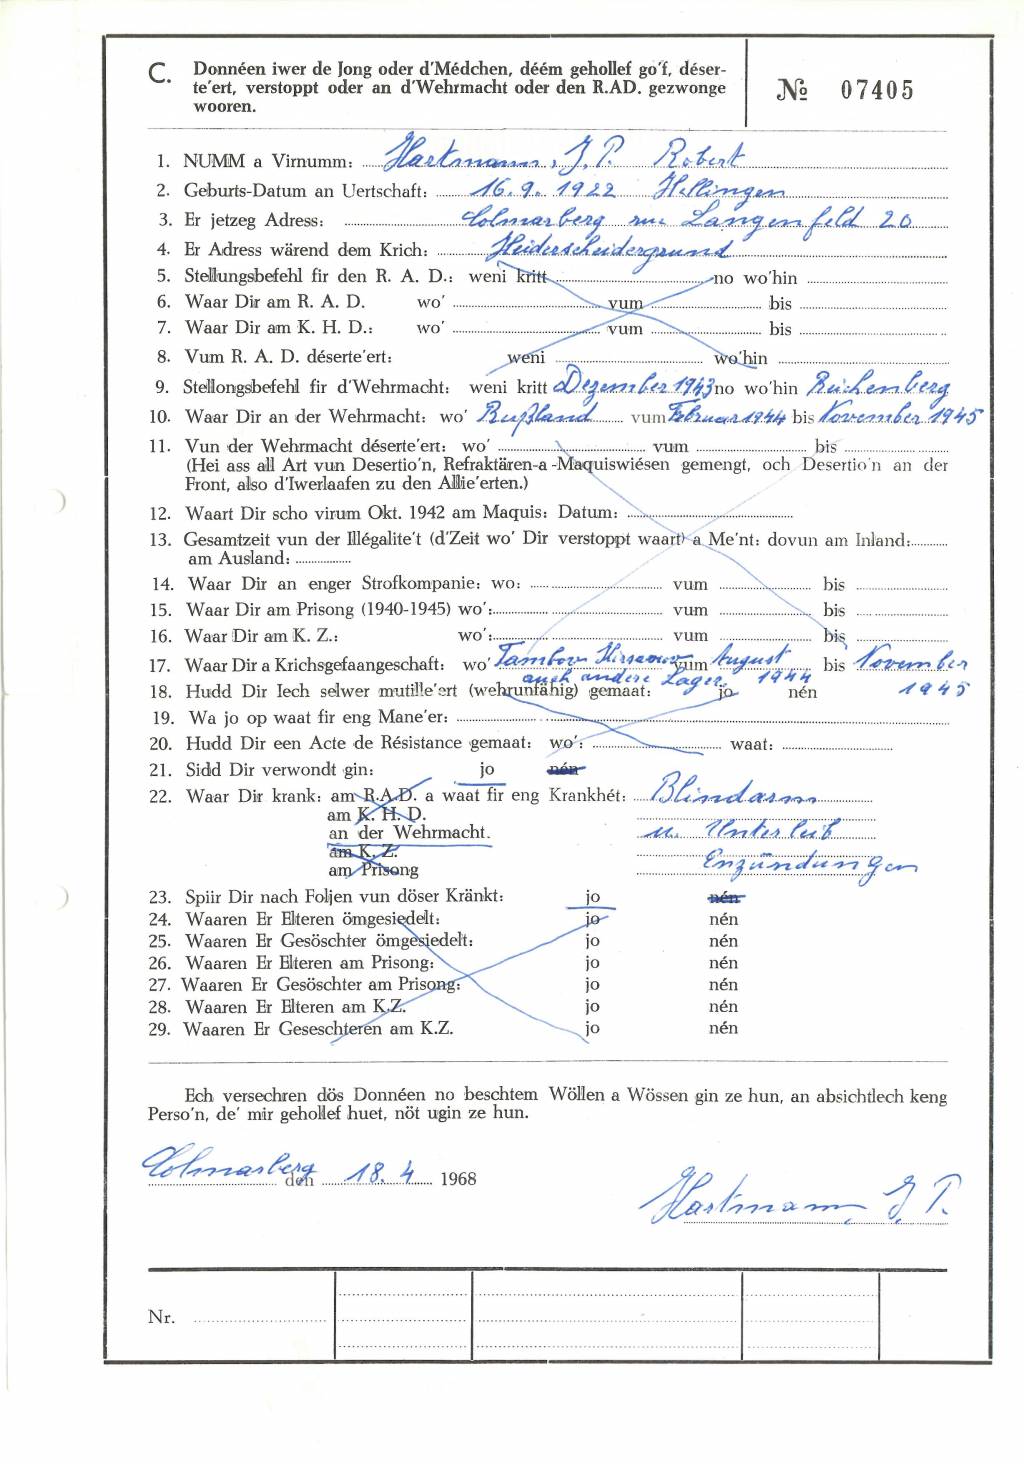 C. Donnéen iwer de Jong oder d'Médchen, déém gehollef go'f, déser-
te'ert, verstoppt oder an d'Wehrmacht oder den R.AD. gezwonge
wooren.
№ 07405
1. NUMM a Virnumm: Hartmann, J. P. Robert
2. Geburts-Datum an Uertschaft: 16. 9. 1922 Hellingen
3. Er jetzeg Adress: Colmarberg rue Langenfeld 20
4. Er Adress wärend dem Krich: Heiderscheidergrund
5. Stellungsbefehl fir den R. A. D.: weni kritt no wo'hin
6. Waar Dir am R. A. D. wo' vum bis
7. Waar Dir am K. H. D.: wo' vum bis
8. Vum R. A. D. déserte'ert: weni wo'hin
9. Stellongsbefehl fir d'Wehrmacht: weni kritt Dezember 1943 no wo'hin Reichenberg
10. Waar Dir an der Wehrmacht: wo' Rußland vum Februar 1944 bis November 1945
11. Vun der Wehrmacht déserte'ert: wo' vum bis
(Hei ass all Art vun Desertio'n, Refraktären-a-Maquiswiésen gemengt, och Desertio'n an der
Front, also d'Iwerlaafen zu den Allie'erten.)
12. Waart Dir scho virum Okt. 1942 am Maquis: Datum:
13. Gesamtzeit vun der Illégalite't (d'Zeit wo' Dir verstoppt waart) a Me'nt: dovun am Inland:
am Ausland:
14. Waar Dir an enger Strofkompanie: wo: vum bis
15. Waar Dir am Prisong (1940-1945) wo': vum bis
16. Waar Dir am K. Z.: wo': vum bis
17. Waar Dir a Krichsgefaangeschaft: wo' Tambow Kirsanow vum August bis November
auch andere Lager 1944
18. Hudd Dir Iech selwer mutille'ert (wehrunfähig) gemaat: jo nén 1945
19. Wa jo op waat fir eng Mane'er:
20. Hudd Dir een Acte de Résistance gemaat: wo': waat:
21. Sidd Dir verwondt gin: jo nén
22. Waar Dir krank: am R.A.D. a waat fir eng Krankhét: Blindarm
am K. H. D.
an der Wehrmacht. u. Unterleib
am K. Z.
am Prisong Enzündungen
23. Spiir Dir nach Foljen vun döser Kränkt: jo nén
24. Waaren Er Elteren ömgesiedelt: jo nén
25. Waaren Er Gesöschter ömgesiedelt: jo nén
26. Waaren Er Elteren am Prisong: jo nén
27. Waaren Er Gesöschter am Prisong: jo nén
28. Waaren Er Elteren am K.Z. jo nén
29. Waaren Er Geseschteren am K.Z. jo nén
Ech versechren dös Donnéen no beschtem Wöllen a Wössen gin ze hun, an absichtlech keng
Perso'n, de' mir gehollef huet, nöt ugin ze hun.
Colmarberg den 18. 4 1968
Hartmann, J. P.
Nr.